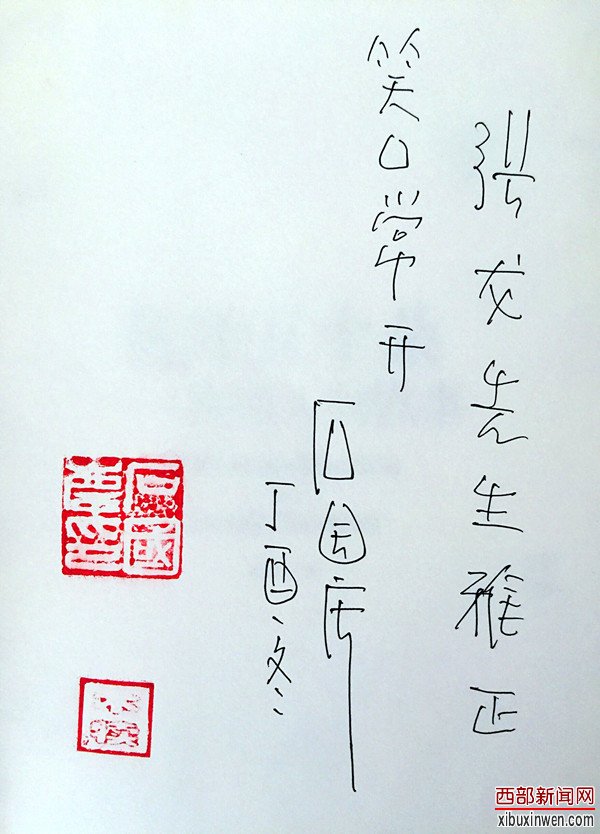 张龙先生雅正
笑口常开
石国庆
丁酉冬
石國慶印
西部新闻网
xibuxinwen.com